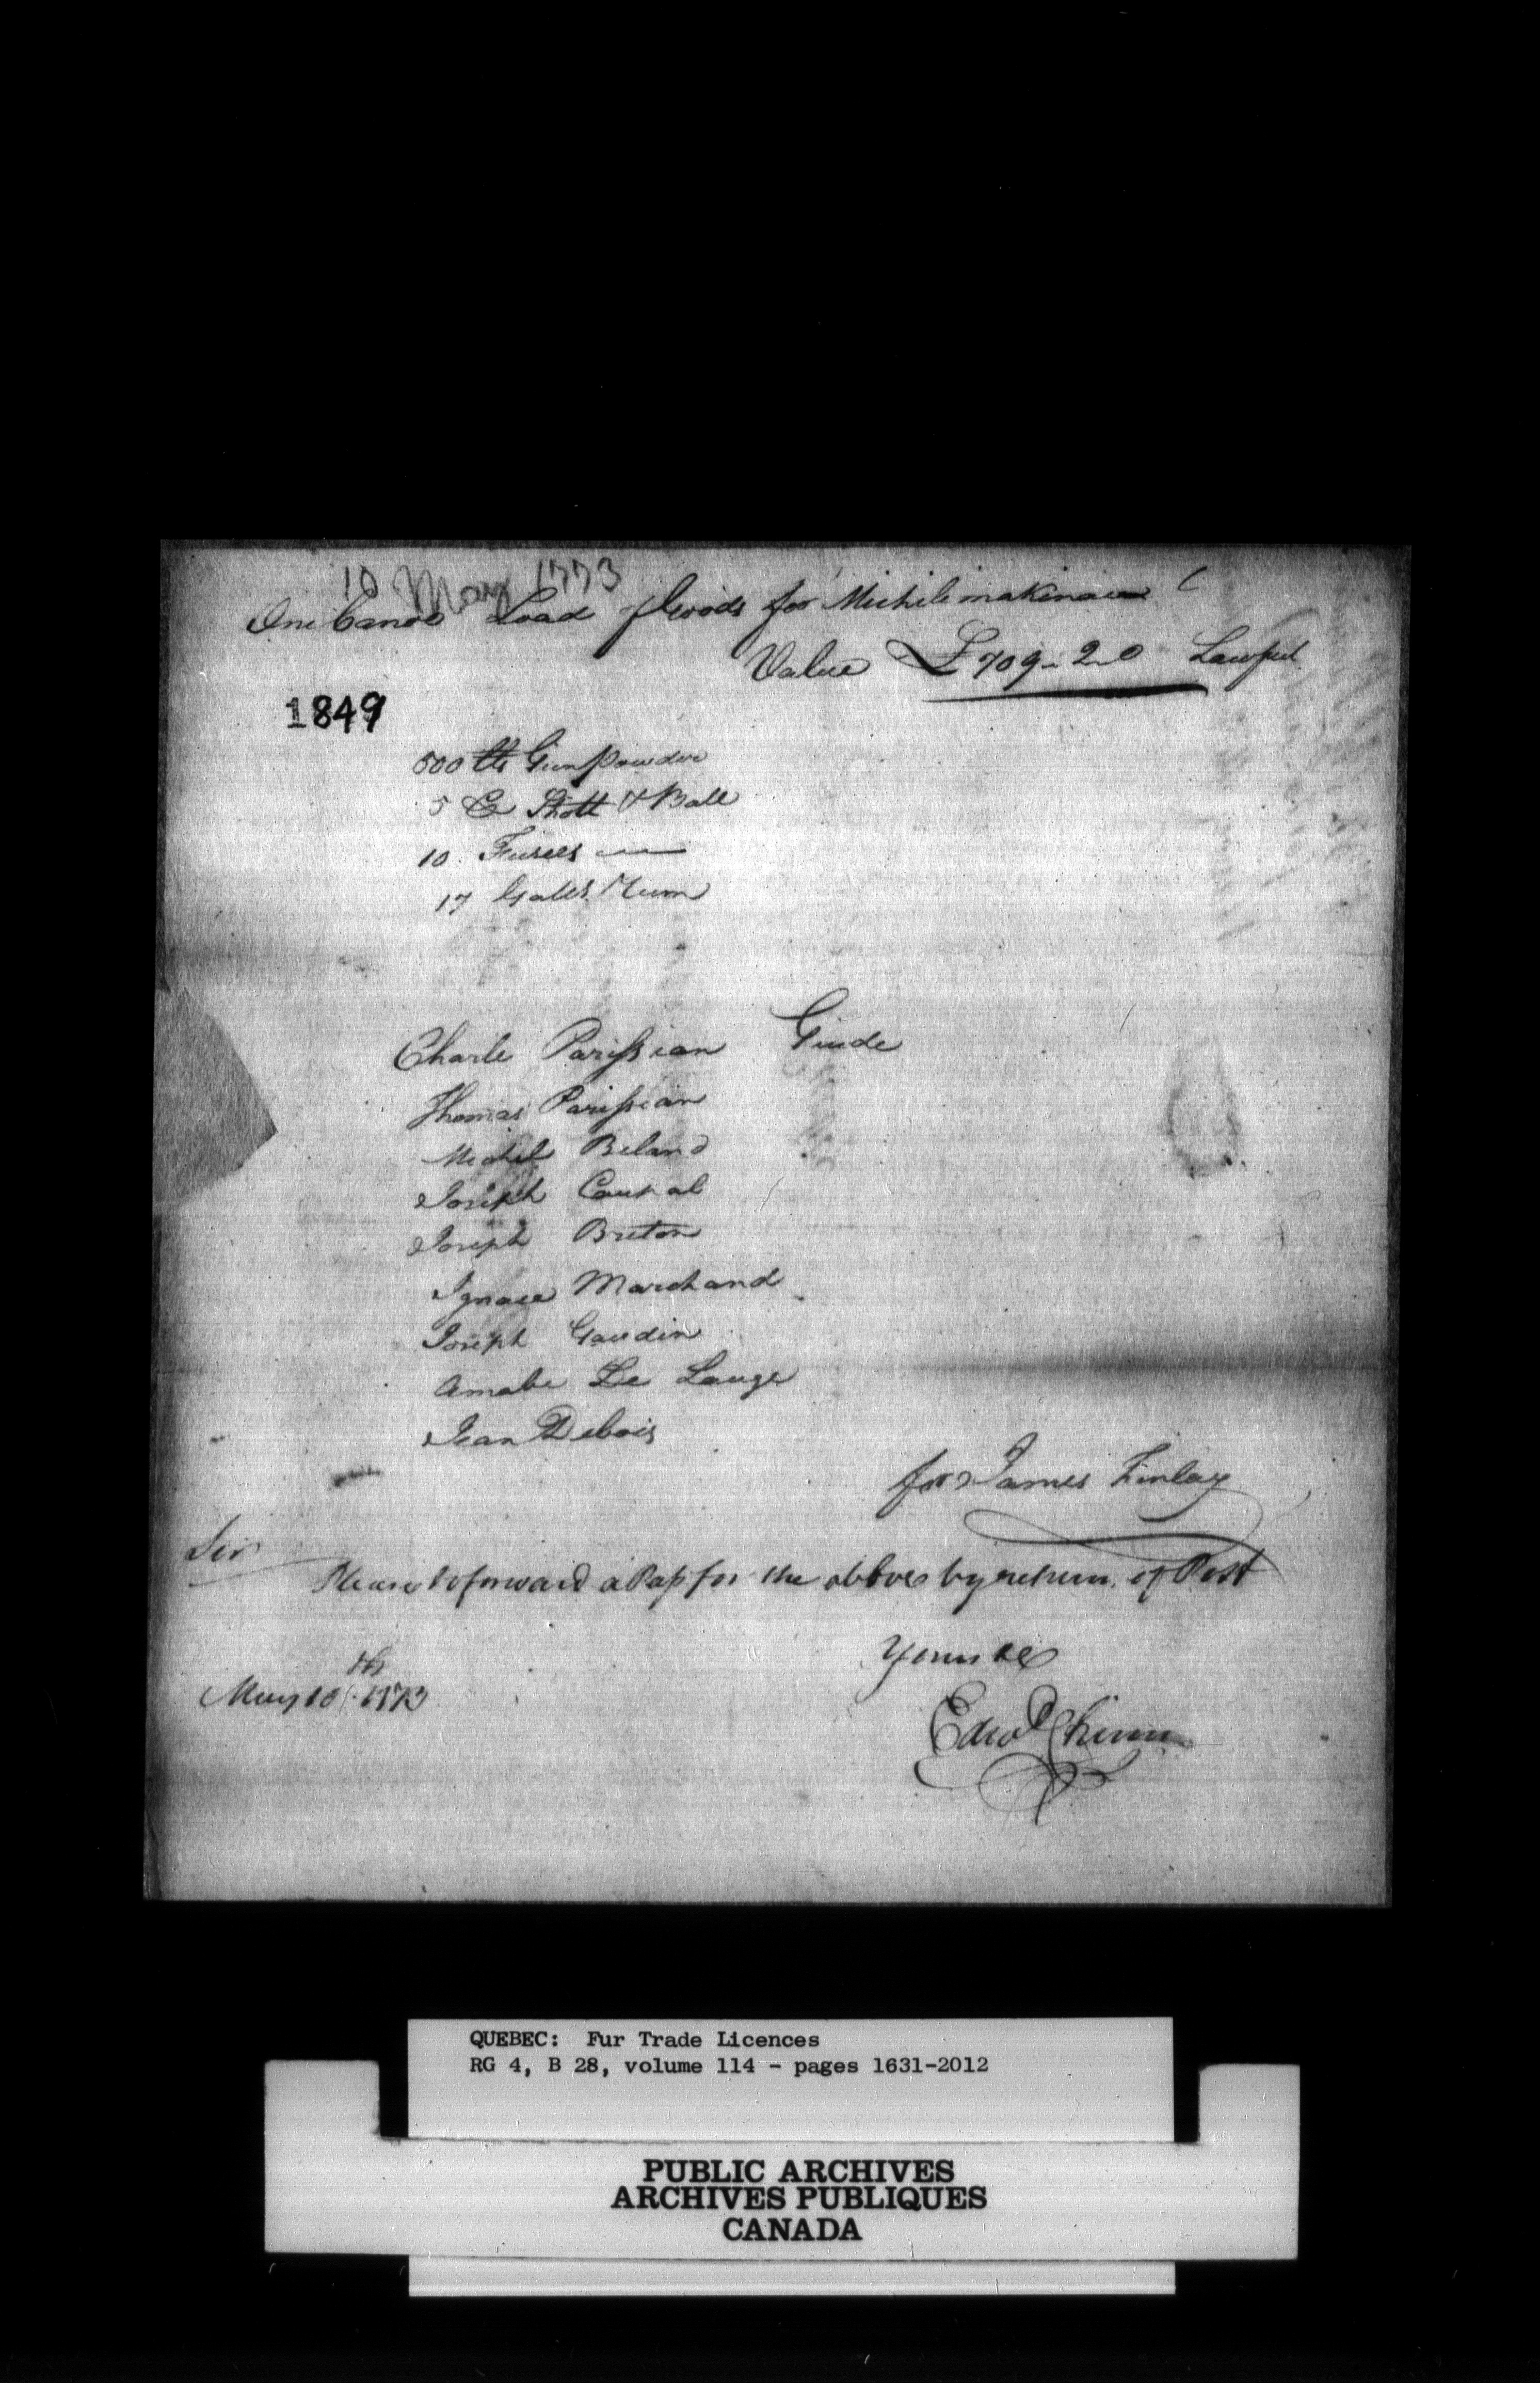 10 May 1773
One Canoe Load of Goods for Michilimakinac
Value £709-2-0 Lawful
1849
500 lb Gun Powder
5 C Shott & Ball
10 Fusees
17 Galls. Rum
Charle Parissian Giude
Thomas Parissian
Michel Beland
Joseph
Joseph Breton
Ignace Marchand
Joseph Gaudin
Amable Le Lauge
Jean Debois
for James Finlay
Sir
Please to forward a Pass for the above by return of Post
Yours &c
May 10th. 1773
Edwd Chinn
QUEBEC: Fur Trade Licences
RG 4, B 28, volume 114 - pages 1631-2012
PUBLIC ARCHIVES
ARCHIVES PUBLIQUES
CANADA